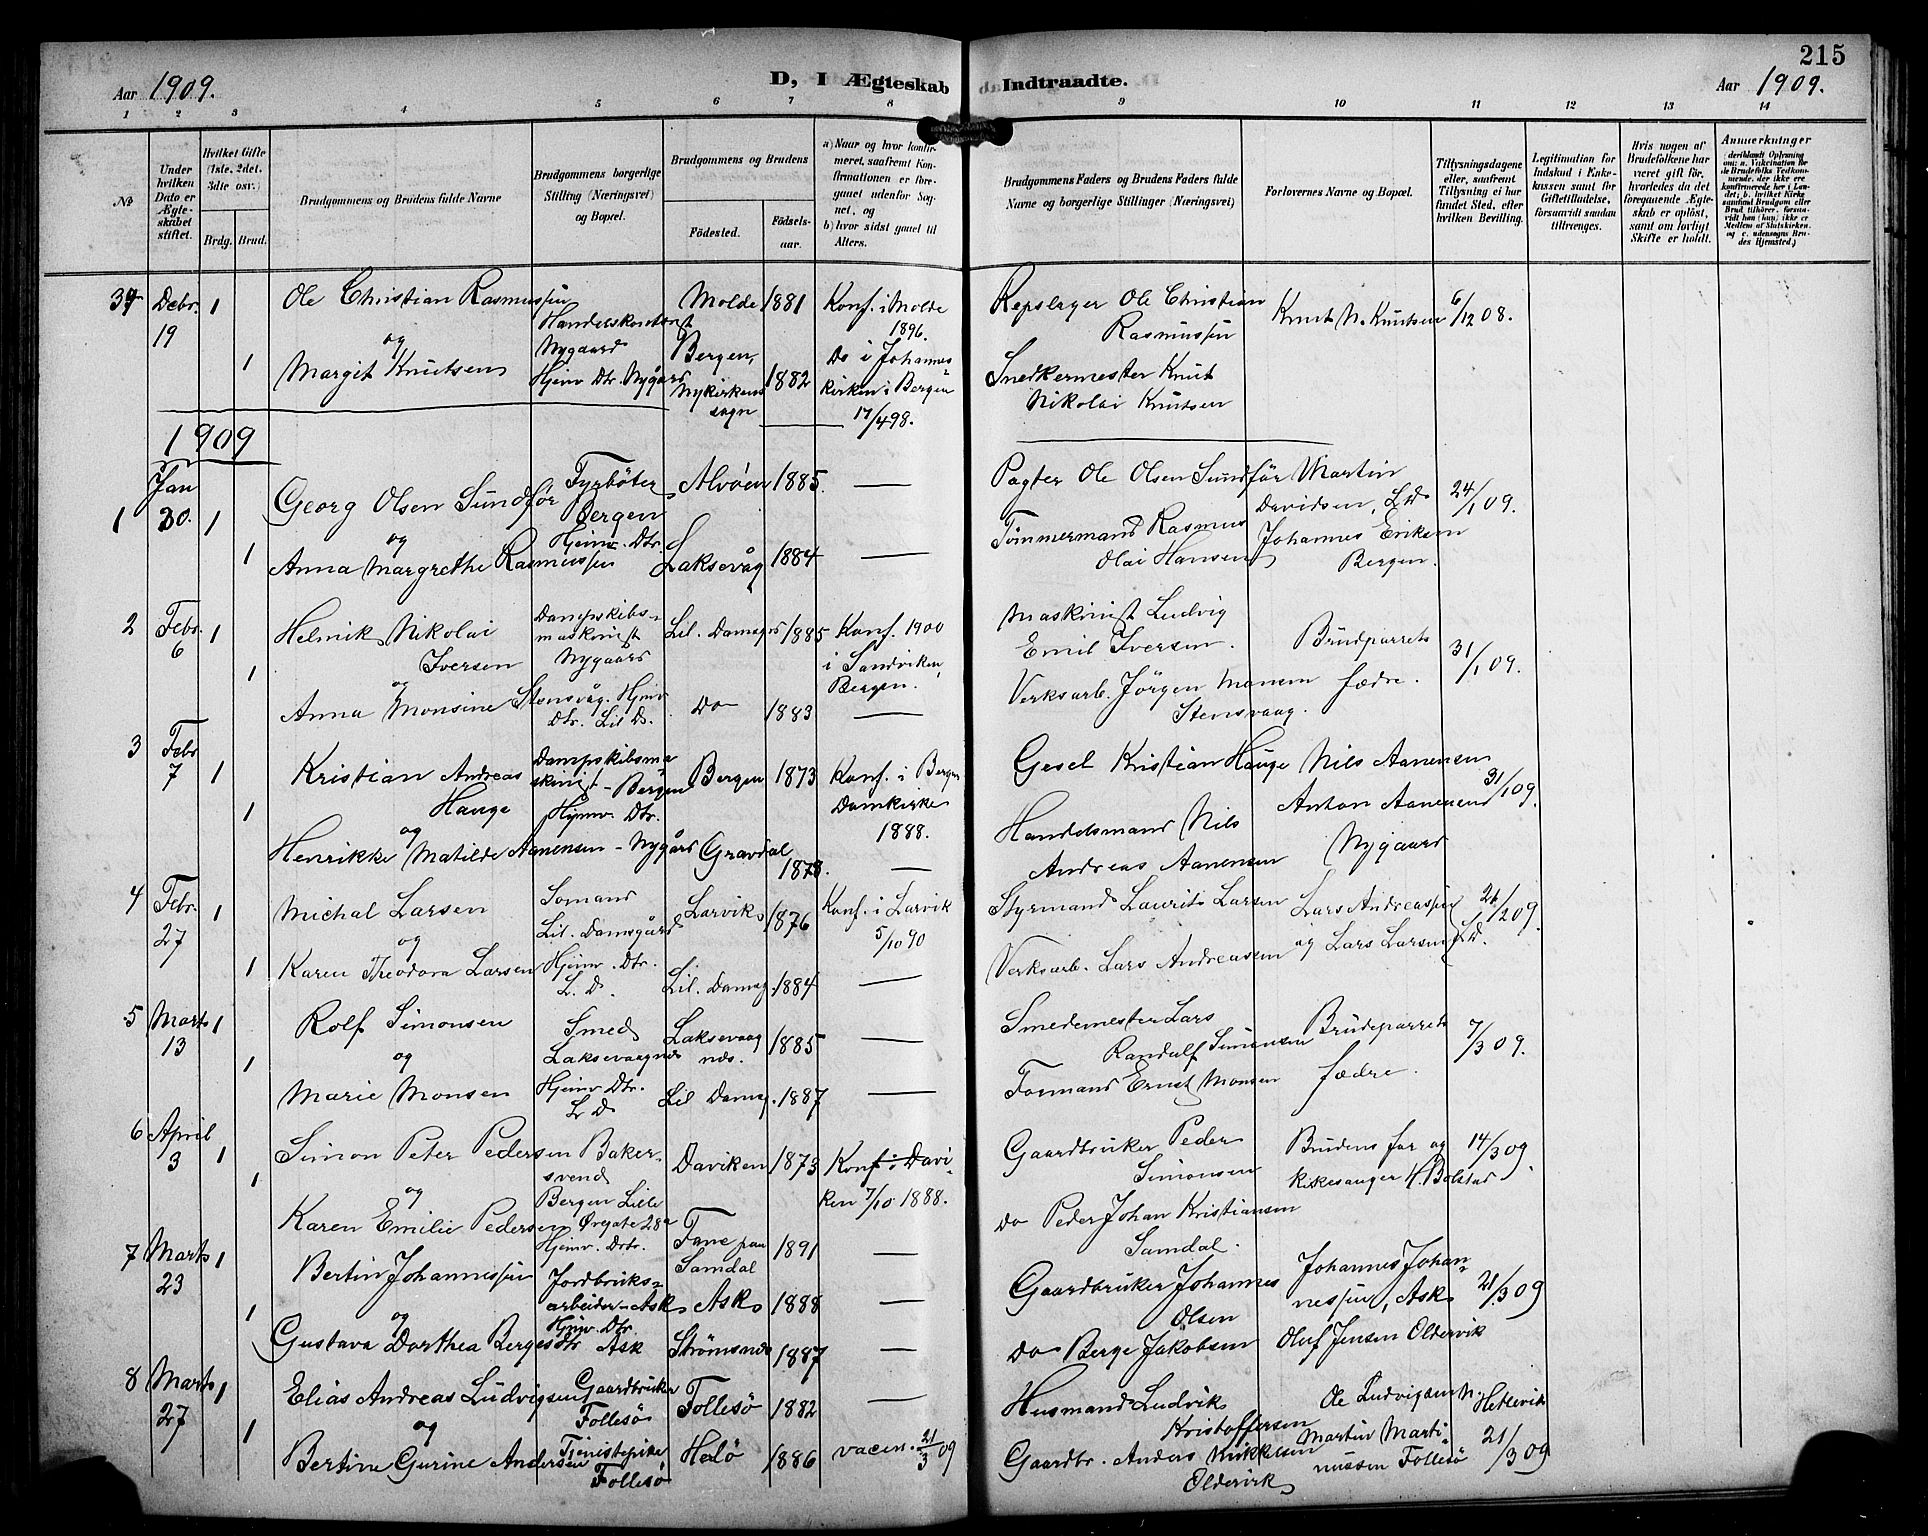 215
Aar 1909.
D, I Ægteskab Indtraadte.
Aar 1909.
1 2 3 4 5 6 7 8 9 10 11 12 13 14
No
Under hvilken Dato er Ægteskabet stiftet.
Hvilket Gifte (1ste, 2det, 3die osv.)
Brdg. Brud.
Brudgommens og Brudens fulde Navne
Brudgommens borgerlige Stilling (Næringsvei) og Bopæl.
Brudgommens og Brudens
Fødested.
Fødselsaar.
a) Naar og hvor konfirmeret, saafremt Konfirmationen er foregaaet udenfor Sognet, og
b) hvor sidst gaaet til Alters.
Brudgommens Faders og Brudens Faders fulde Navne og borgerlige Stillinger (Næringsvei)
Forlovernes Navne og Bopæl.
Tillysningsdagene eller, saafremt Tillysning ei har fundet Sted, efter hvilken Bevilling.
Legitimation for Indskud i Enkekassen samt for Giftetilladelse, forsaavidt saadan tiltrænges.
Hvis nogen af Brudefolkene har været gift før, hvorledes da det foregaaende Ægteskab er opløst, samt om lovligt Skifte er holdt.
Anmerkninger
(deriblandt Oplysning om: a. Vakcination for de Brudefolks Vedkommende, der ikke ere konfirmerede her i Landet; b. hvilket Kirkesamfund Brudgom eller Brud tilhører, forsaavidt han (hun) ikke er Medlem af Statskirken, og c. udensogns Brudes Hjemsted.)
39 Debr. 19 1
Ole Christian Rasmussen
Handelskontorist
Nygaard
Molde 1881
Konf. i Molde
1896.
Repslager Ole Christian
Rasmussen
Knut N. Knutsen
6/12 08.
og
1
Margit Knutsen
Hjemv. Dtr. Nygård
Bergen,
Nykirkens
sogn
1882
Do i Johannes
kirken i Bergen
17/4 98.
Snedkermester Knut
Nikolai Knutsen
1909
1 Jan 30. 1
Georg Olsen Sundfør
Fyrbøter
Bergen
Alvøen 1885.
Pagter Ole Olsen Sundfør
Martin
Davidsen, L.D.
24/1 09.
og
1
Anna Margrethe Rasmussen
Hjemv. Dtr.
Laksevåg 1884
Tømmermand Rasmus
Olai Hansen
Johannes Eriksen
Bergen.
2 Febr. 6 1
Helmik Nikolai
Iversen
Dampskibs-
maskinist
Nygaard
Lil. Damsgs 1885
Konf. 1900
i Sandviken,
Bergen.
Maskinist Ludvig
Emil Iversen.
Brudparrets
fædre.
31/1 09.
og
1
Anna Monsine Stensvåg.
Hjemv.
Dtr. Lil D.
Do 1883
Verksarb. Jörgen Monsen
Stensvaag.
3 Febr 7 1
Kristian Andreas
Hauge
Dampskibsma
skinist - Bergen
Bergen 1873
Konf. i Bergen
Domkirke
1888.
Gesel Kristian Hauge
Nils Aanensen
Anton Aanensen
Nygaard
31/1 09.
og
1
Henrikke Matilde Aanensen - Nygård
Hjemv. Dtr.
Gravdal
1878.
Handelsmand Nils
Andreas Aanensen
4 Febr. 27 1
Michal Larsen
Sømand
Lil. Damsgård
Larvik 1876
Konf. i Larvik
5/10 90
Styrmand Laurits Larsen
Lars Andreassen
og Lars Larsen L.D.
21/2 09.
og
1
Karen Theodora Larsen
Hjemv. Dtr.
L. D.
Lil. Damsg. 1884
Verksarb. Lars Andreassen
5 Marts 13 1
Rolf Simonsen
Smed
Laksevaagnæs
Laksevaag
næs. 1885
Smedemester Lars
Randulf Simonsen
Brudeparrets
fædre.
7/3 09.
og
1
Marie Monsen
Hjemv Dtr.
L D
Lil Damsg. 1887
Formand Ernst Monsen
6 April 3 1
Simon Peter Pedersen
Baker-
svend
Bergen Lille
Øvregate 28a
Daviken 1873
Konf. i Davi-
ken 7/10 1888.
Gaardbruker Peder
Simonsen
Brudens far og
kirkesanger H. Bolstad
14/3 09.
og
1
Karen Emilie Pedersen
Hjemv. Dtr.
Fane paa
Samdal
1891
Do Peder Johan Kristiansen
Samdal.
7 Marts 23 1
Bertin Johannessen
Jordbruks-
arbeider - Ask
Ask 1888
Gaardbruker Johannes
Olsen
Johannes Johan-
nessen, Ask
21/3 09
og
1
Gustava Dorthea Bergesdtr
Hjemv. Dtr.
Ask
Strömsnes 1887
Do Berge Jakobsen
Oluf Jensen Oldervik
8 Marts 27 1
Elias Andreas Ludvigsen
Gaardbruker
Follesö
Follesö 1882
Husmand Ludvik
Kristoffersen
Ole Ludvigsen N. Hetlevik
og
1
Bertine Gurine Andersen
Tjenistepike
Follesö
Herlö 1886
vaccn. 21/3 09
Gaardbr. Anders Mikkelsen
Oldervik
Martin Marti-
nussen Follesö
21/3 09